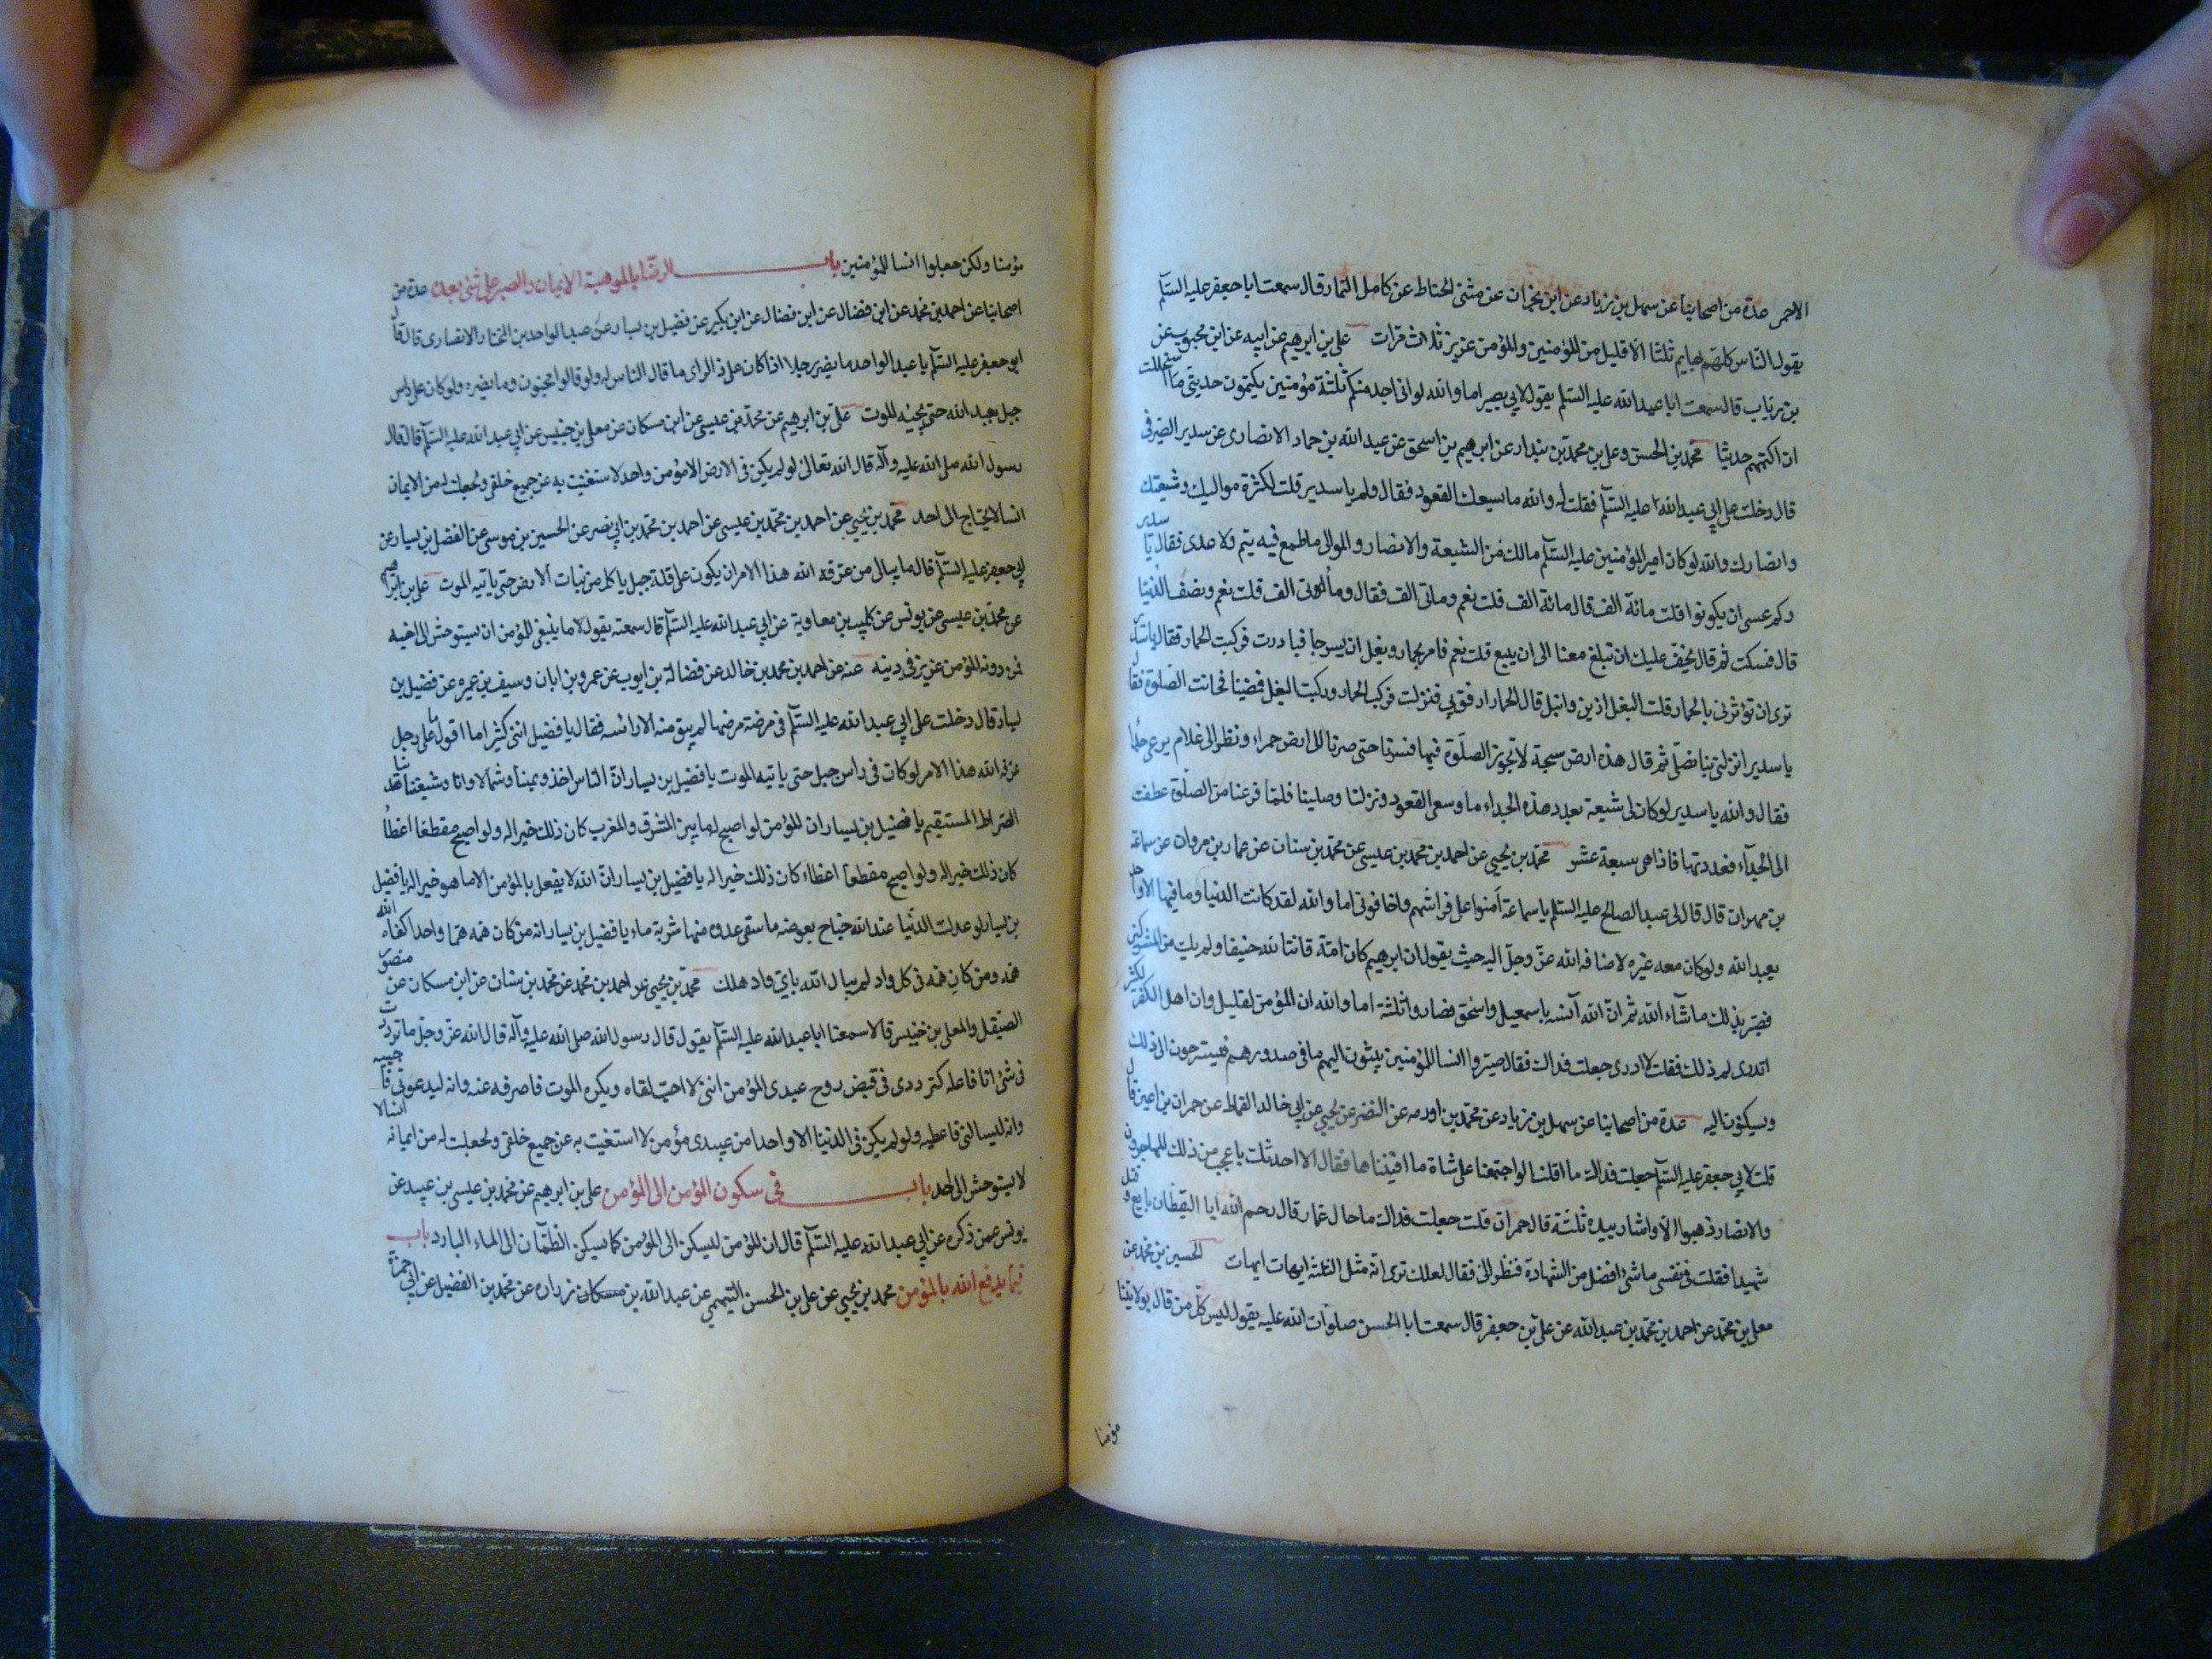 الاحمر عدة من اصحابنا عن سهل بن زياد عن ابن نجران عن مثنى الحناط عن كامل التمار قال سمعت ابا جعفر عليه السلم
يقول الناس كلهم بهايم ثلثا الا قليل من المؤمنين والمؤمن عزيز ثلاث مرات علي بن ابرهيم عن ابيه عن ابن محبوب عن
بن رئاب قال سمعت ابا عبد الله عليه السلم يقول لابي بصير اما والله لو انى اجد منكم ثلثة مؤمنين يكتمون حديثى ما استحللت
ان اكتمهم حديثا محمد بن الحسن وعلي بن محمد بن بندار عن ابرهيم بن اسحق عن عبد الله بن حماد الانصارى عن سدير الصيرفى
قال دخلت على ابي عبد الله عليه السلم فقلت له والله ما يسعك القعود فقال ولم يا سدير قلت لكثرة مواليك وشيعتك
وانصارك والله لو كان امير المؤمنين عليه السلم مالك من الشيعة والانصار والموالى ما طمع فيه يتم ولا عدى فقال يا سدير
وكم عسى ان يكونوا قلت مائة الف قال مائة الف قلت نعم ومائتى الف فقال ومائتى الف قلت نعم ونصف الدنيا
قال فسكت ثم قال يخف عليك ان تبلغ معنا الى ان ينبع قلت نعم فامر بحمار وبغل ان يسرجا فبادرت فركبت الحمار فقال يا سدير
ترى ان تؤثرنى بالحمار قلت البغل ازين وانبل قال الحمار ارفق بي فنزلت فركب الحمار وركبت البغل فمضينا فحانت الصلوة فقال
يا سدير انزل بنا نصلي ثم قال هذه ارض سبخة لا تجوز الصلوة فيها فسرنا حتى صرنا الى ارض حمراء ونظر الى غلام يرعى جداء
فقال والله يا سدير لو كان لى شيعة بعدد هذه الجداء ما وسعى القعود ونزلنا وصلينا فلما فرغنا من الصلوة عطفت
الى الجداء فعددتها فاذا هى سبعة عشر محمد بن يحيى عن احمد بن محمد بن عيسى عن محمد بن سنان عن عمار بن مروان عن سماعة
بن مهران قال قال لى عبد الصالح عليه السلم يا سماعة آمنوا على فراشهم واخافونى اما والله لقد كانت الدنيا وما فيها الا واحد
يعبد الله ولو كان معه غيره لاضافه الله عز وجل اليه حيث يقول ان ابرهيم كان امة قانتا لله حنيفا ولم يك من المشركين
فصبر بذلك ما شاء الله ثم ان الله آنسه باسمعيل واسحق فصاروا ثلثة اما والله ان المؤمن لقليل وان اهل الكفر لكثير
اتدرى لم ذلك فقلت لا ادرى جعلت فداك فقال صيروا انسا للمؤمنين يبثون اليهم ما فى صدورهم فيسترحون الى ذلك
ويسكنون اليه عدة من اصحابنا عن سهل بن زياد عن محمد بن اورمه عن النضر عن يحيى عن ابي خالد القماط عن حمران بن اعين قال
قلت لابي جعفر عليه السلم جعلت فداك ما اقلنا لو اجتمعنا على شاة ما افنيناها فقال الا احدثك باعجب من ذلك المهاجرون
والانصار ذهبوا الا واشار بيده ثلثة قال حمران قلت جعلت فداك ما حال عمار قال رحم الله ابا اليقظان بايع وقتل
شهيدا فقلت فى نفسى ما شئ افضل من الشهادة فنظر الى فقال لعلك ترى انه مثل الثلثة ايهات ايهات الحسين بن محمد عن
معلى بن محمد عن احمد بن محمد بن عبد الله عن علي بن جعفر قال سمعت ابا الحسن صلوات الله عليه يقول ليس كل من قال بولايتنا
مؤمنا
مؤمنا ولكن جعلوا انسا للمؤمنين باب الرضا بالموهبة الايمان والصبر على شئ بعده عدة من
اصحابنا عن احمد بن محمد عن ابن فضال عن ابن فضال عن ابن بكير عن فضيل بن يسار عن عبد الواحد بن المختار الانصارى قال قال
ابو جعفر عليه السلم يا عبد الواحد ما يضر رجلا اذا كان على ذا الراى ما قال الناس له ولو قالوا مجنون وما يضره ولو كان على راس
جبل يعبد الله حتى يجيئه الموت علي بن ابرهيم عن محمد بن عيسى عن ابن مسكان عن معلى بن خنيس عن ابي عبد الله عليه السلم قال قال
رسول الله صلى الله عليه وآله قال الله تعالى لو لم يكن فى الارض الا مؤمن واحد لاستغنيت به عن جميع خلقى ولجعلت له من الايمان
انسا لا يحتاج الى احد محمد بن يحيى عن احمد بن محمد بن عيسى عن احمد بن محمد بن ابي نصر عن الحسين بن موسى عن الفضل بن يسار عن
ابي جعفر عليه السلم قال ما يبالى من عرفه الله هذا الامر ان يكون على قلة جبل ياكل من نبات الارض حتى ياتيه الموت علي بن ابرهيم
عن محمد بن عيسى عن يونس عن كليب بن معاوية عن ابي عبد الله عليه السلم قال سمعته يقول لا ما ينبغى للمؤمن ان يستوحش الى اخيه
فمن دونه المؤمن عزيز فى دينه عنه عن احمد بن محمد بن خالد عن فضالة بن ايوب عن عمرو بن ابان وسيف بن عميره عن فضيل بن
يسار قال دخلت على ابي عبد الله عليه السلم فى مرضة مرضها لم يبق منه الا راسه فقال يا فضيل اننى كثيرا ما اقول ما على رجل
عرفه الله هذا الامر لو كان فى راس جبل حتى ياتيه الموت يا فضيل بن يسار ان الناس اخذوا يمينا وشمالا وانا وشيعتنا هدينا
الصراط المستقيم يا فضيل بن يسار ان المؤمن لو اصبح له ما بين المشرق والمغرب كان ذلك خيرا له ولو اصبح مقطعا اعضاؤه
كان ذلك خيرا له ولو اصبح مقطعا اعظاء كان ذلك خيرا له يا فضيل بن يسار ان الله لا يفعل بالمؤمن الا ما هو خير له يا فضيل
بن يسار لو عدلت الدنيا عند الله جناح بعوضة ما سقى عدوه منها شربة ماء يا فضيل بن يسار انه من كان همه هما واحدا كفاه الله
همه ومن كان همه فى كل واد لم يبال الله باى واد هلك محمد بن يحيى عن احمد بن محمد عن محمد بن سنان عن ابن مسكان عن منصور
الصيقل والمعلى بن خنيس قالا سمعنا ابا عبد الله عليه السلم يقول قال رسول الله صلى الله عليه وآله قال الله عز وجل ما ترددت
فى شئ انا فاعله كترددى فى قبض روح عبدى المؤمن اننى لاحب لقاه ويكره الموت فاصرفه عنه وانه ليدعونى فاجيبه
وانه ليسالنى فاعطيه ولو لم يكن فى الدنيا الا واحدا من عبيدى مؤمن لاستغنيت به عن جميع خلقى ولجعلت له من ايمانه انسا لا
لا يستوحش الى احد باب فى سكون المؤمن الى المؤمن علي بن ابرهيم عن محمد بن عيسى بن عبيد عن
يونس عمن ذكره عن ابي عبد الله عليه السلم قال ان المؤمن ليسكن الى المؤمن كما يسكن الظمآن الى الماء البارد باب
فيما يدفع الله بالمؤمن محمد بن يحيى عن علي بن الحسن التيمي عن عبد الله بن مسكان زراره عن محمد بن الفضيل عن ابي حمزة